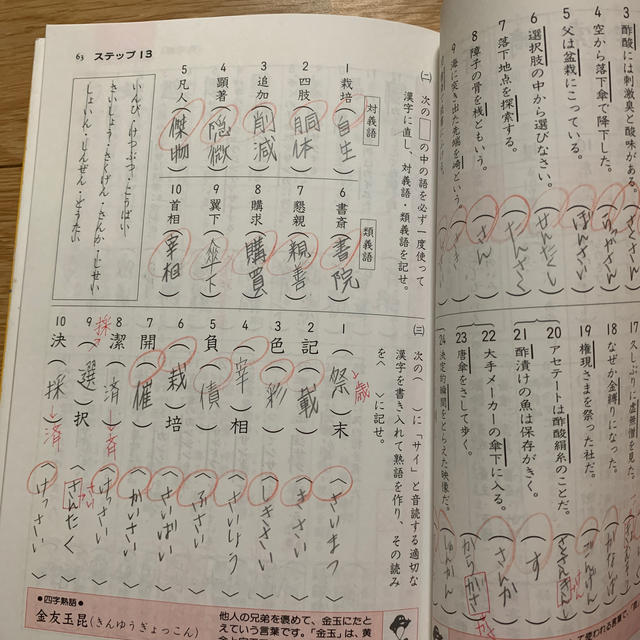 3 酢酸には刺激臭と酸味がある。
4 空から落下傘で降下した。(らっかさん)
5 父は盆栽にこっている。(ぼんさい)
6 選択肢の中から選びなさい。
7 落下地点を探索する。(たんさく)
8 障子の骨を桟ともいう。(さん)
18 なぜか金縛りになった。
19 権現さまを祭った社だ。
20 アセテートは酢酸絹糸のことだ。
21 酢漬けの魚は保存がきく。(す)
22 大手メーカーの傘下に入る。(さんか)
23 唐傘をさして歩く。
24 決定的瞬間をとらえた映像だ。(しゅんかん)
63 ステップ13
(二) 次の□の中の語を必ず一度使って
漢字に直し、対義語・類義語を記せ。
対義語
1 栽培(自生)
2 四肢(胴体)
3 追加(削減)
4 顕著(隠微)
5 凡人(傑物)
類義語
6 書斎(書院)
7 懇親(親善)
8 購求(購買)
9 翼下(傘下)
10 首相(宰相)
いんび・けつぶつ・こうばい・
さいしょう・さくげん・さんか・じせい・
しょいん・しんぜん・どうたい
(三) 次の( )に「サイ」と音読する適切な
漢字を書き入れて熟語を作り、その読み
を〈 〉に記せ。
1 (祭)末〈さいまつ〉
歳
2 記(載)〈きさい〉
3 色(彩)〈しきさい〉
4 (宰)相〈さいしょう〉
5 負(債)〈ふさい〉
6 (栽)培〈さいばい〉
7 開(催)〈かいさい〉
8 潔(済)〈けっさい〉
斎
9 (選)択〈せんたく〉
採
さい
10 決(採)〈けっさい〉
済
●四字熟語
金友玉昆(きんゆうぎょっこん)
他人の兄弟を褒めて、金玉にたと
えていう言葉です。「金玉」は、黄